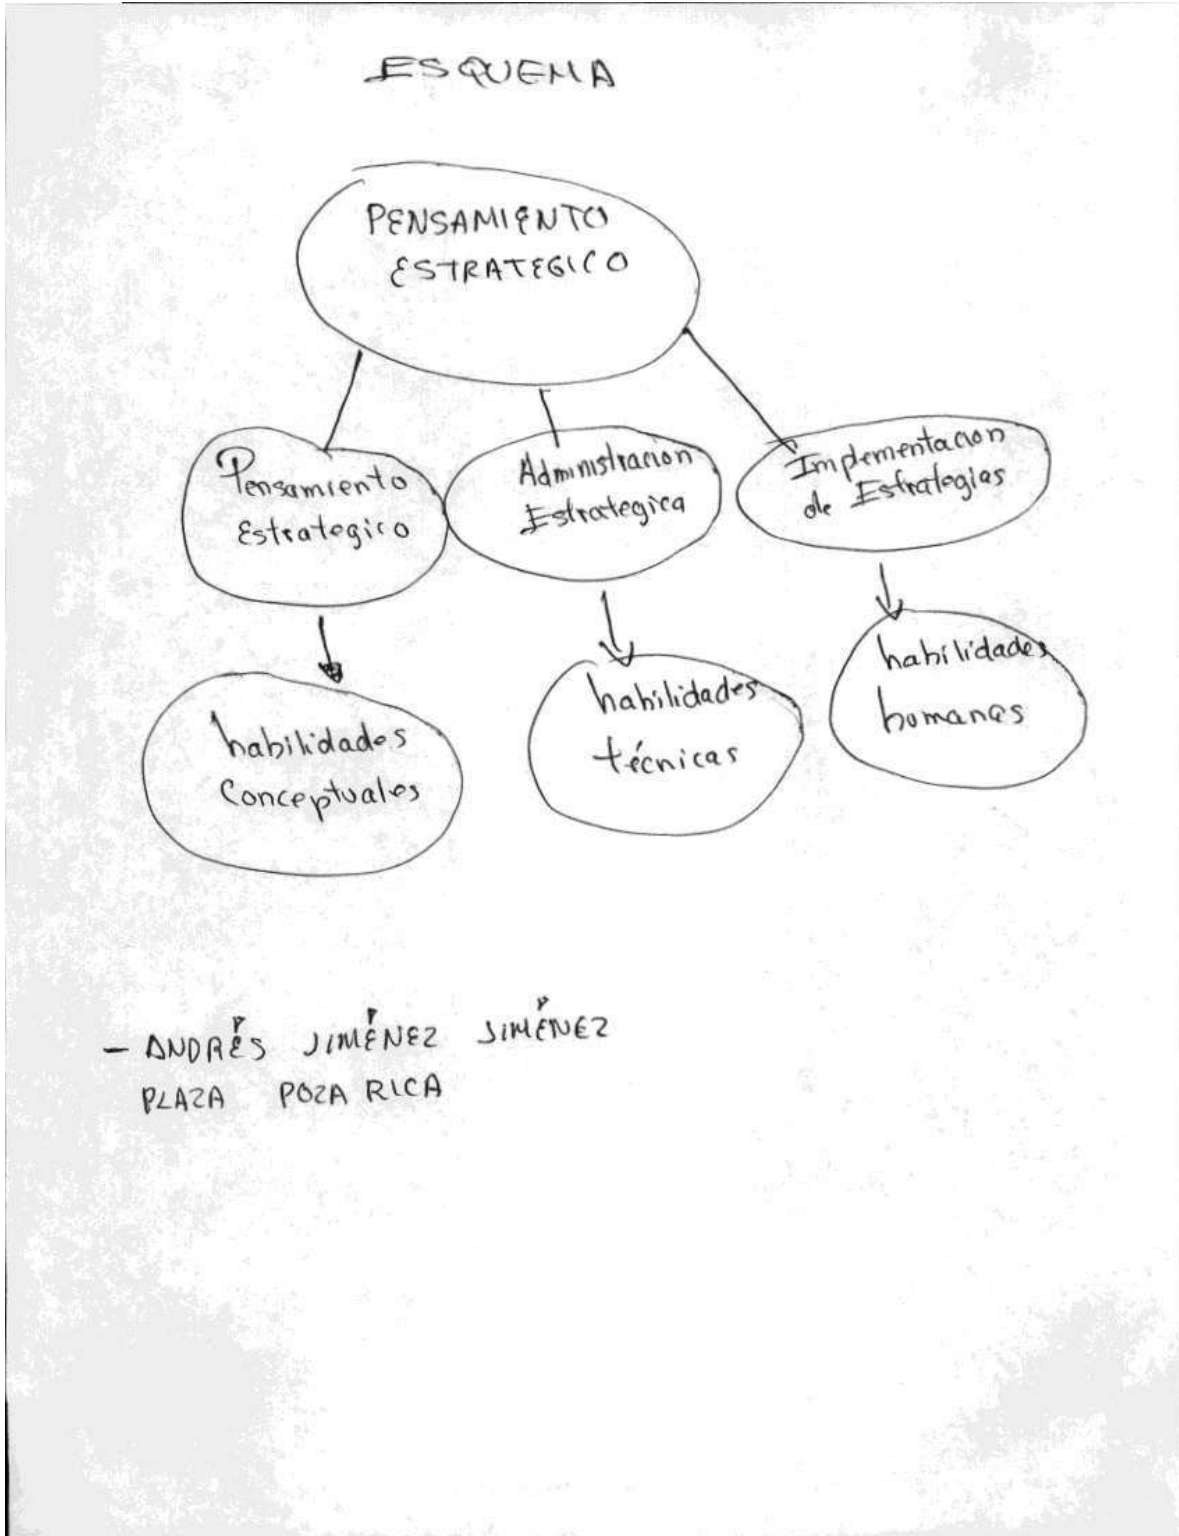 ESQUEMA
PENSAMIENTO
ESTRATEGICO
Pensamiento
Estrategico
Administracion
Estrategica
Implementacion
de Estrategias
habilidades
Conceptuales
habilidades
técnicas
habilidades
humanas
- ANDRÉS JIMÉNEZ JIMÉNEZ
PLAZA POZA RICA